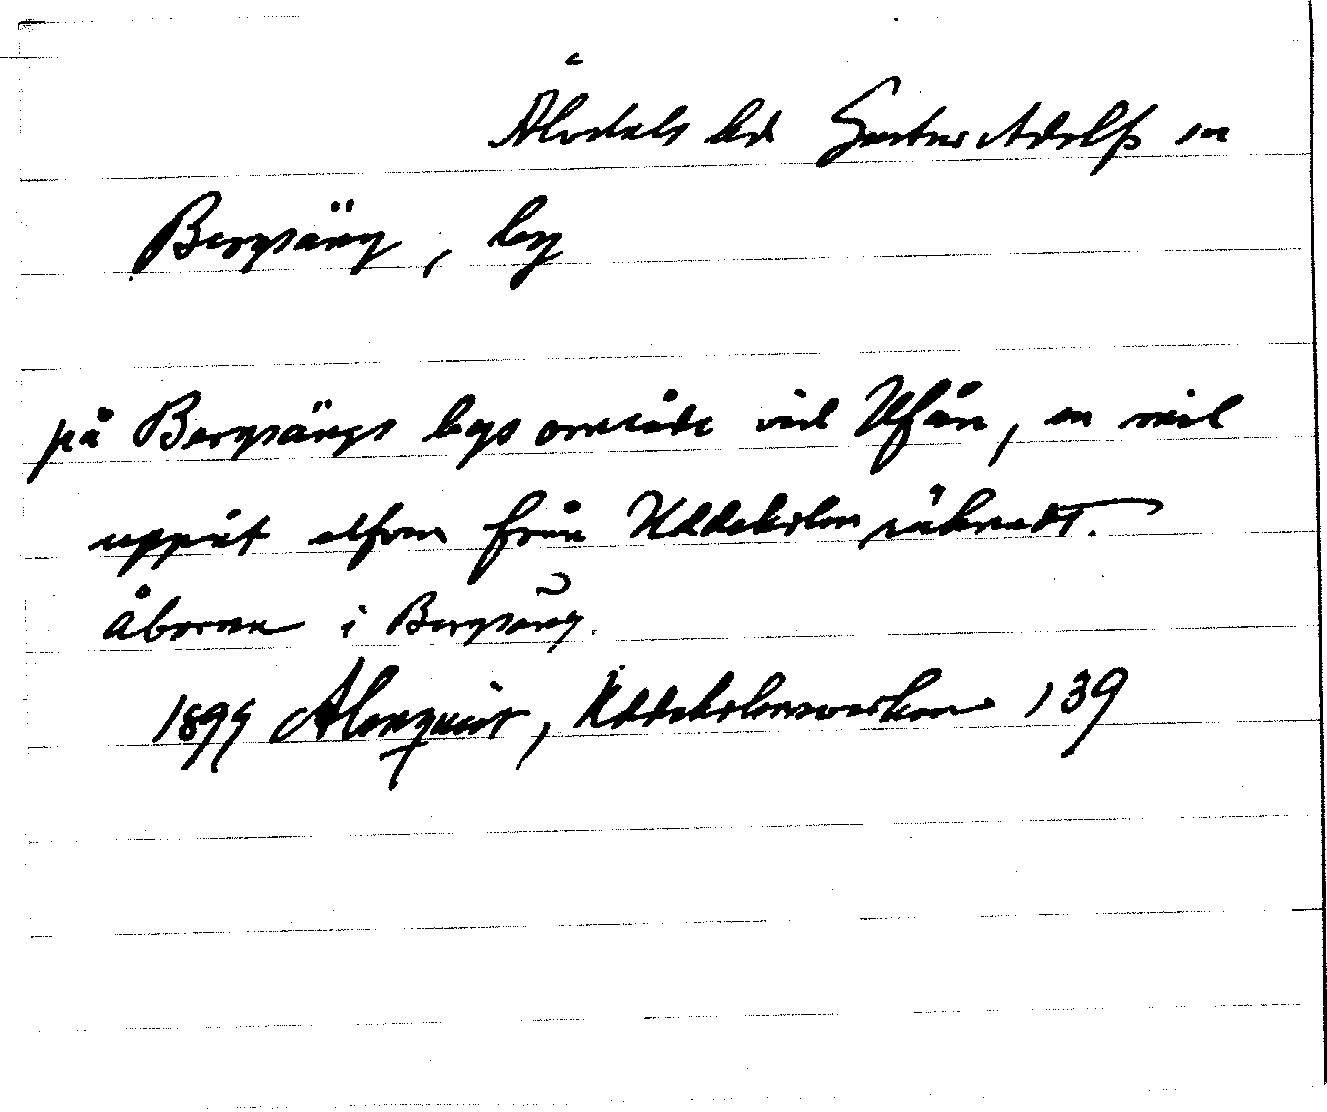 Älvdals hd Gustav Adolfs sn
Bergsäng, by
på Bergsängs bys område vid Ufån, en mil
uppåt elfven från Uddeholm räknadt.
Åboerne i Bergsäng.
1899 Almquist, Uddeholmsverken 139